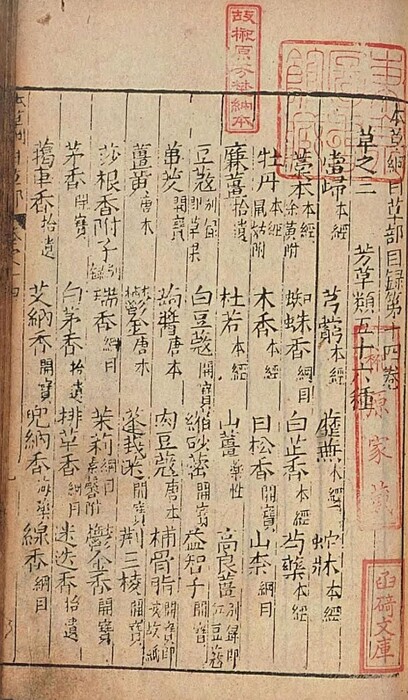 本草綱目草部目録第十四卷
草之三 芳草類五十六種
當歸本經 芎藭本經 蘼蕪本經 蛇牀本經
藁本本經 徐黄附 蜘蛛香綱目 白芷香本經 芍藥本經
牡丹本經 鼠姑附 木香本經 甘松香開寶 山柰綱目
廉薑拾遺 杜若本經 山薑藥性 高良薑別録 即紅豆蔻
豆蔻別録 即草果 白豆蔻開寶 縮砂蔤開寶 益智子開寶
蓽茇開寶 蒟醬唐本 肉豆蔻唐本 補骨脂開寶 即破故紙
薑黄唐本 鬱金唐本 蓬莪茂開寶 荆三棱開寶
莎根香附子別録 瑞香綱目 茉莉綱目 素馨附 鬱金香開寶
茅香開寶 白茅香拾遺 排草香綱目 迷迭香拾遺
藒車香拾遺 艾納香開寶 兜納香海藥 線香綱目
故榊原芳埜納本
榊原家藏
函碕文庫